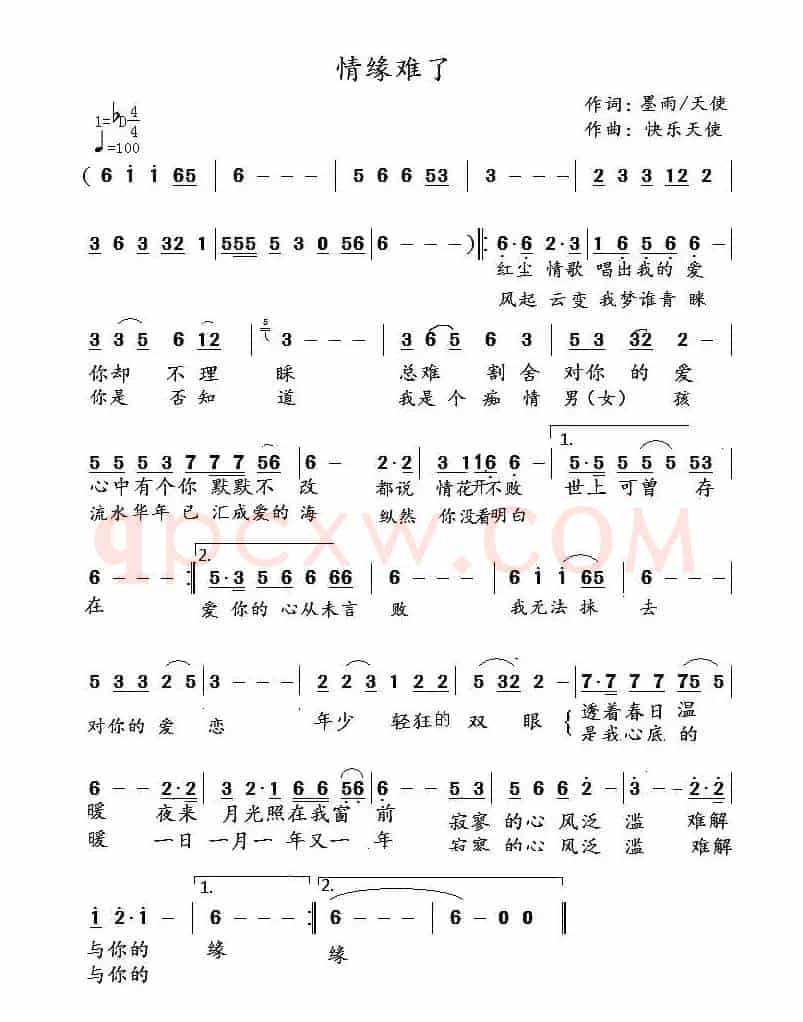 情缘难了
作词：墨雨/天使
1=♭D 4/4
作曲：快乐天使
♩=100
( 6 i i 65 | 6 - - - | 5 6 6 53 | 3 - - - | 2 3 3 12 2 |
3 6 3 32 1 | 555 5 3 0 56 | 6 - - - ) ‖: 6·6 2·3 | 1 6 5 6 6 - |
红尘 情歌 唱出我的 爱
风起 云变 我梦谁青 睐
3 3 5 6 12 | 5 3 - - - | 3 6 5 6 3 | 5 3 32 2 - |
你却 不理 睬 总难 割舍 对你 的 爱
你是 否知 道 我是 个 痴情 男(女) 孩
5 5 5 3 7 7 7 56 | 6 - 2·2 | 3 1 16 6 - | 1. 5·5 5 5 5 53 |
心中有个你 默默不 改 都说 情花开不败 世上 可曾 存
流水华年 已 汇成爱的 海 纵然 你没看明白
qpcxw.com
6 - - - :‖ 2. 5·3 5 6 6 66 | 6 - - | 6 i i 65 | 6 - - |
在 爱 你的 心从未言 败 我无法 抹 去
5 3 3 2 5 | 3 - - - | 2 2 3 1 2 2 | 5 32 2 - | 7·7 7 7 75 5 |
对你的 爱 恋 年少 轻狂的 双 眼 { 透着春日 温
是我心底 的
6 - - 2·2 | 3 2·1 6 6 56 | 6 - - - | 5 53 | 5 6 6 2 - | 3 - - 2·2 |
暖 夜来 月光照在我窗 前 寂寥 的心 风泛 滥 难解
暖 一日 一月一 年又一 年 寂寥 的心 风泛 滥 难解
i 2·i - | 1. 6 - - - :‖ 2. 6 - - - | 6 - 0 0 ‖
与你的 缘 缘
与你的